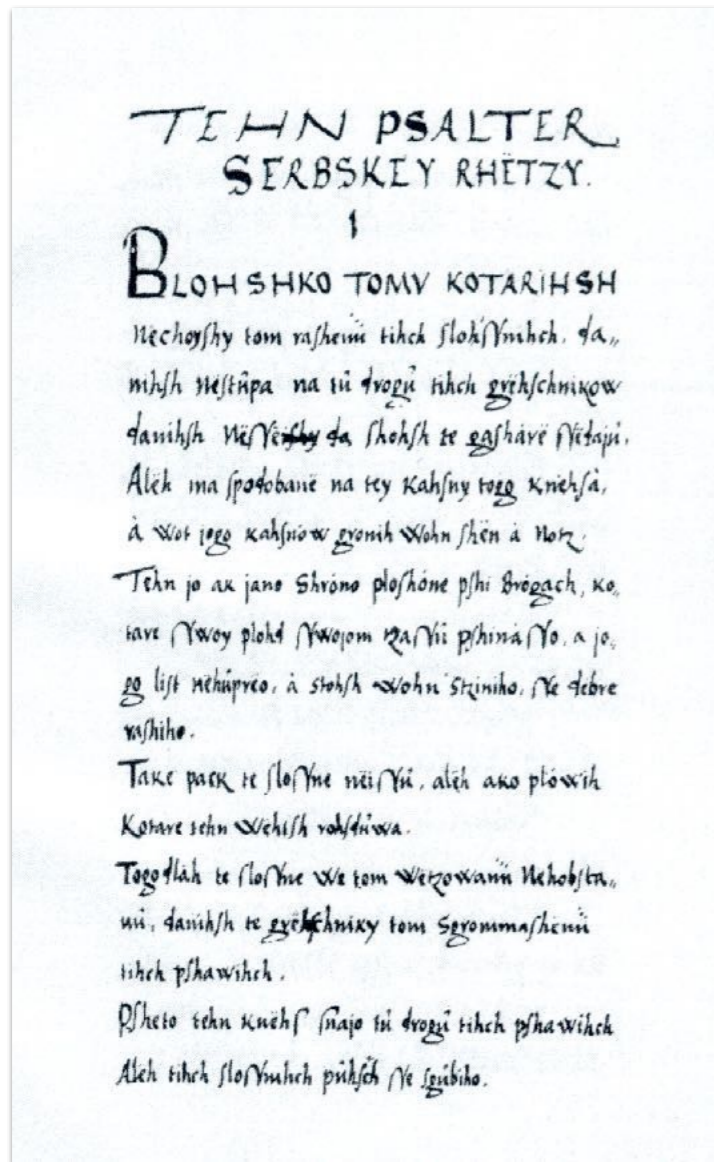 TEHN PSALTER
SERBSKEY RHËTZY.
1
BLOHSHKO TOMV KOTARIHSH
Nechoyſhy tom raſhenü tihch ſlohſſnihch, da„
nihſh Neſtûpa na tû drogû tihch grëhſchnikow
danihſh ſhohſh te gaſharë
Alëh ma ſpodobanë na tey Kahſny togo Knëhſà,
à wot jogo kahſnow gronih wohn ſhën à Notz.
Tehn jo ak jano Shróno ploſhóne pſhi Brógach, ko„
tare ſſwoy plohd ſſwojom tzaſſü pſhinaſſo, a jo„
go liſt nëhûprëo, à stohſh wohn stziniho, ſſe debre
raſhiho.
Take paek te ſloſſne nëiſſû, alëh ako plówih
Kotare tehn Wehtſh rohſdûwa.
Togodlàh te ſloſſne we tom wëtzowanü Nehobſta„
nû, danihſh te grëhſchniky tom Sgrommaſhenü
tihch pſhawihch.
Pſheto tehn Knëhſ ſnajo tû drogû tihch pſhawihch
Alëh tihch ſloſſnihch pûhſch ſſe sgûbiho.